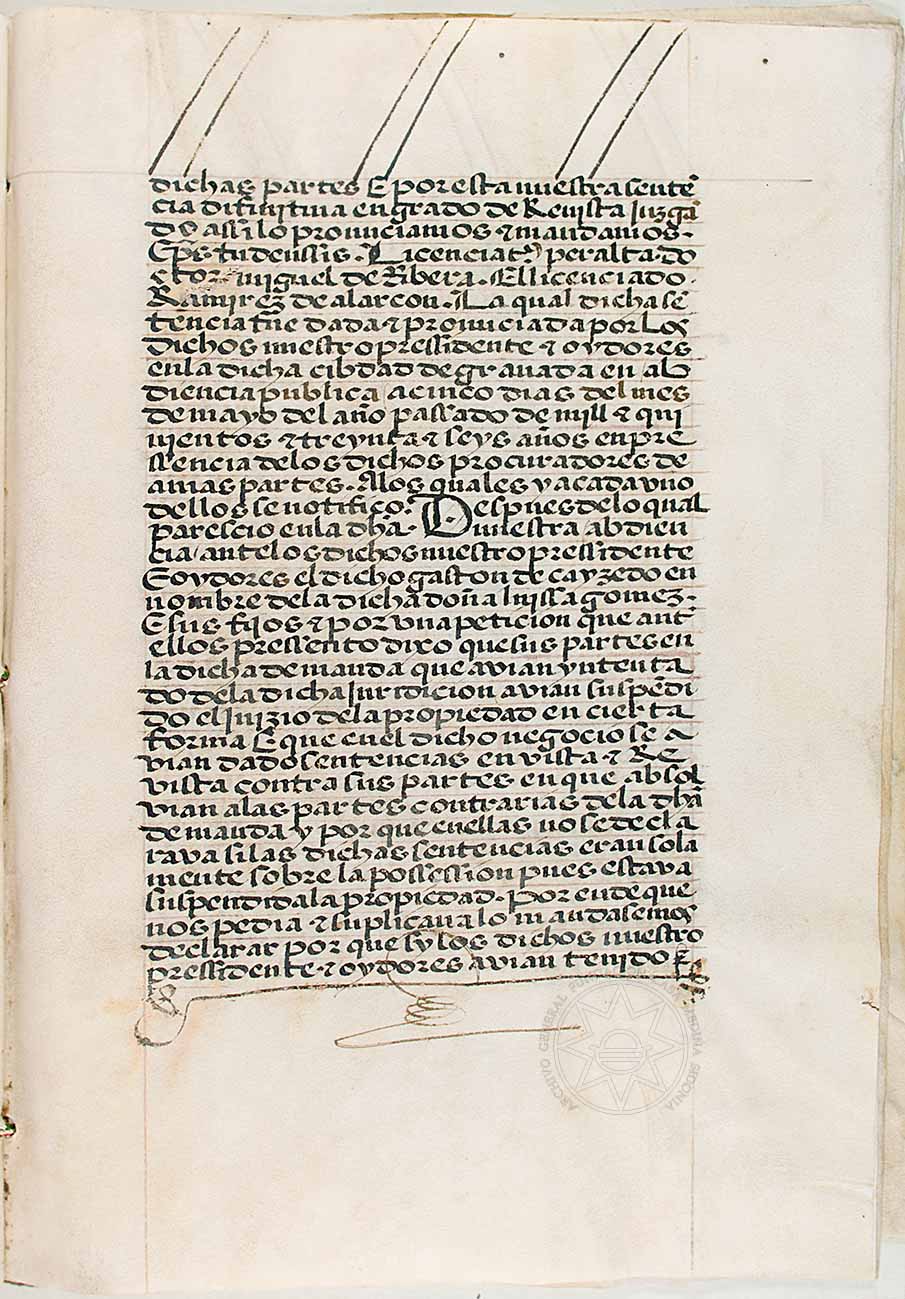 dichas partes E por esta nuestra sentē
cia difinitiua en grado de Reuista Juzgā
do assi lo pronunciamos ⁊ mandamos.
Ep̄s tudensis. Licenciatᵒ peralta. do
ctor miguel de Ribera. El licenciado.
Ramirez de alarcon. La qual dicha sē
tencia fue dada ⁊ pronunciada por los
dichos nuestro pressidente ⁊ oydores
en la dicha cibdad de granada en ab
diencia publica a cinco dias del mes
de mayo del año passado de mill ⁊ qui
nientos ⁊ treynta ⁊ seys años en pre
ssencia de los dichos procuradores de
amas partes. A los quales y a cada vno
dellos se notifico. Despues de lo qual
parescio en la dh̄a. nuestra abdien
cia ante los dichos nuestro pressidente
E oydores el dicho gaston de cayzedo en
nombre de la dicha doña luissa gomez.
E sus fijos ⁊ por vna peticion que ant
ellos pressento dixo que sus partes en
la dicha demanda que avian yntenta
do de la dicha Juridicion avian suspēdi
do el Juizio de la propiedad en cierta
forma E que en el dicho negocio se a
vian dado sentencias en vista ⁊ Re
vista contra sus partes en que absol
vian a las partes contrarias de la dh̄a
demanda y por que en ellas no se decla
rava si las dichas sentencias eran sola
mente sobre la possession pues estava
suspendida la propiedad. Por ende que
nos pedia ⁊ suplicaua lo mandasemos
declarar por que sy los dichos nuestro
pressidente ⁊ oydores avian tenido
ARCHIVO GENERAL FUNDACIÓN CASA MEDINA SIDONIA